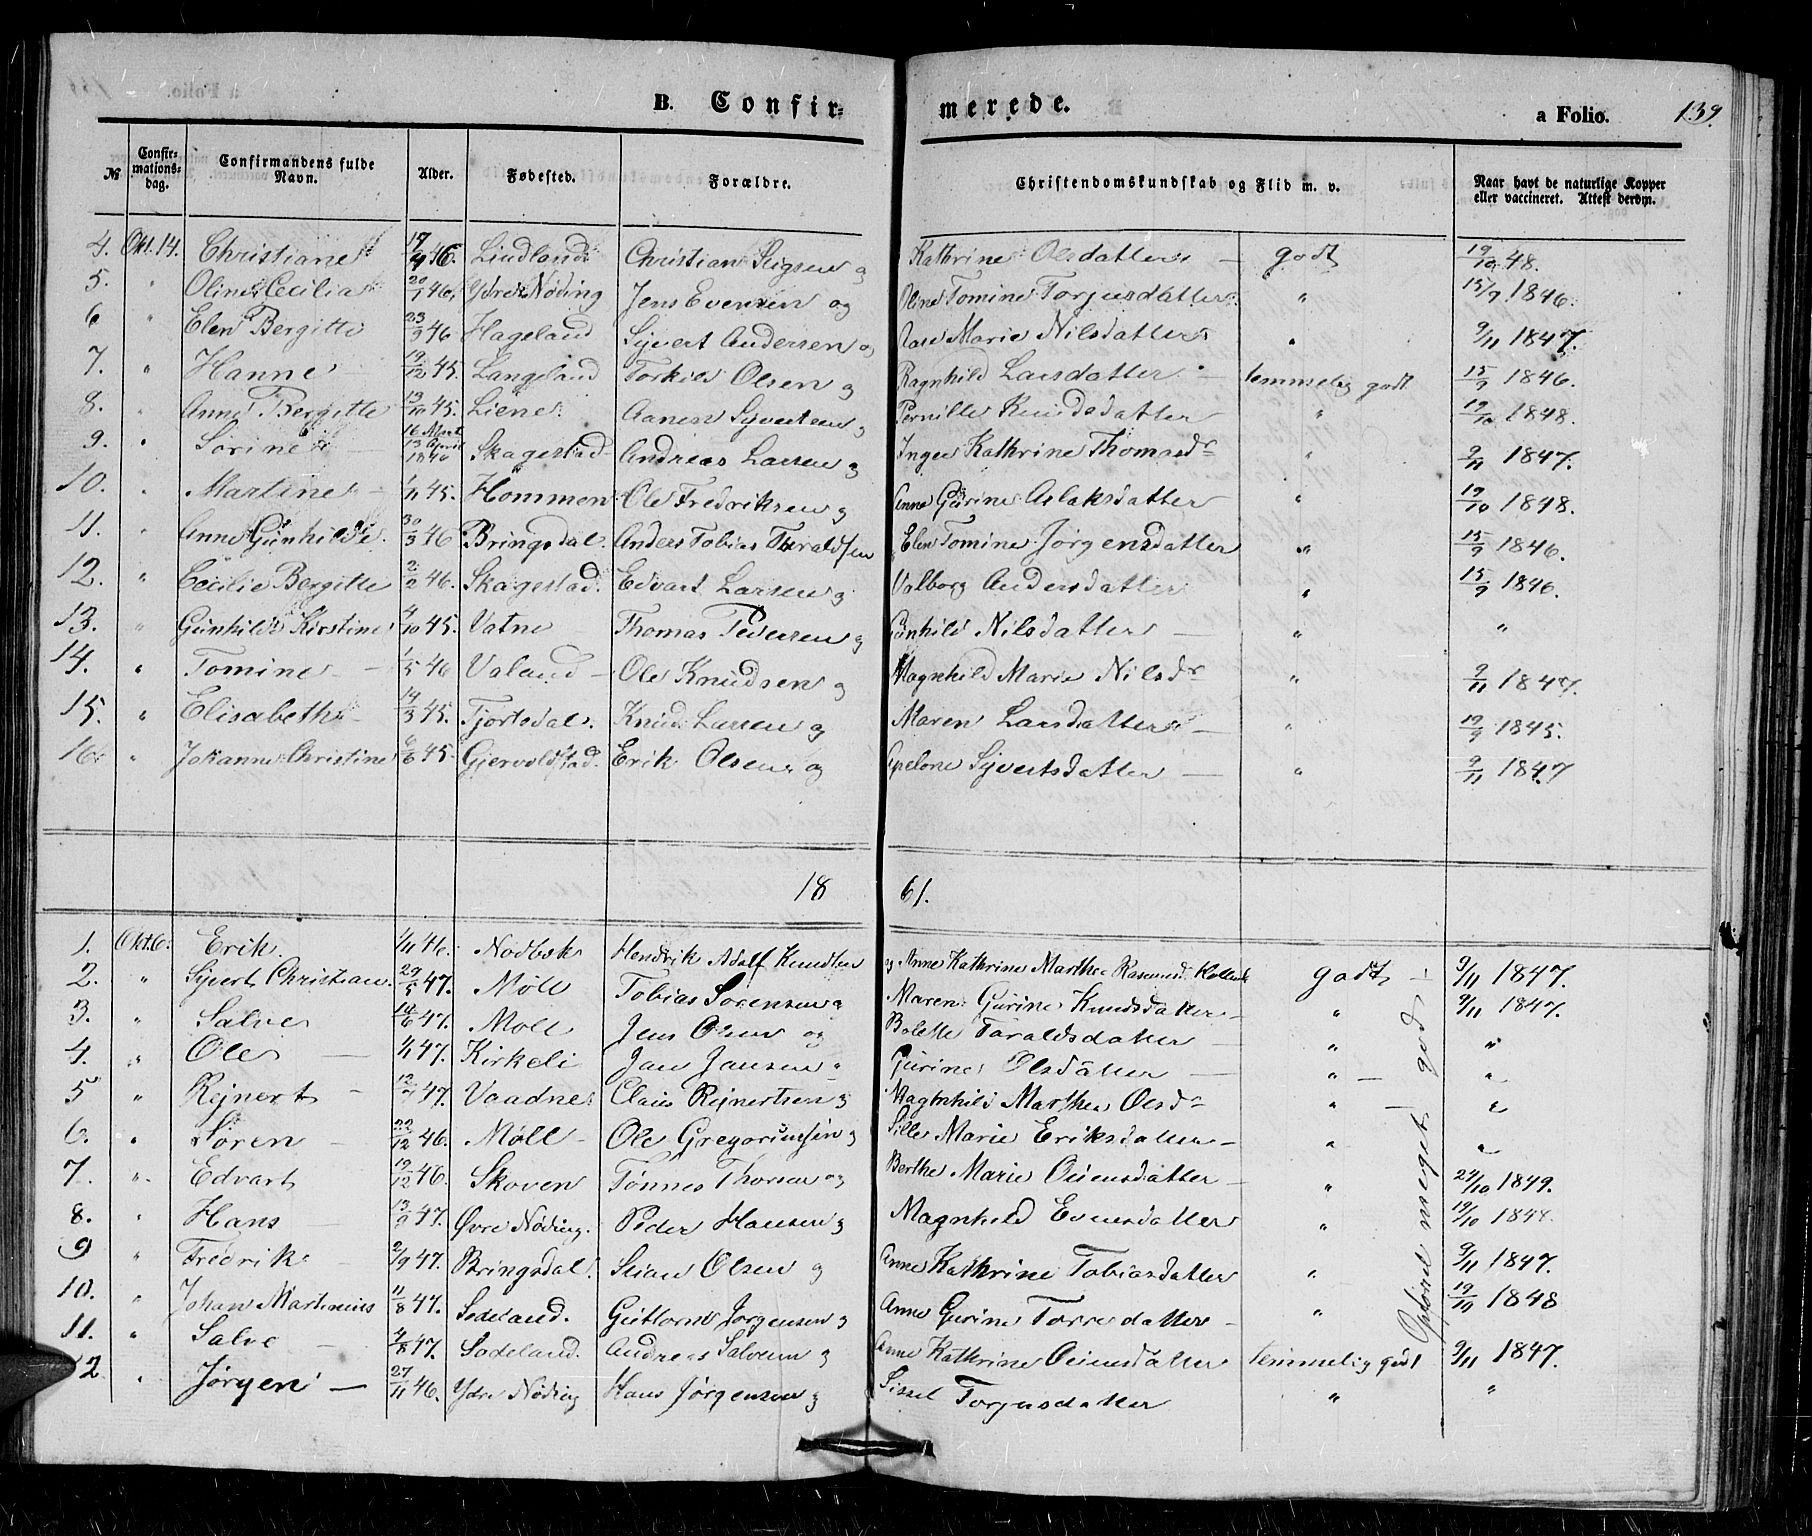 B. Confir= merede. a Folio. 139.
№ Confir-mations-dag. Confirmandens fulde Navn. Alder. Fødested. Forældre. Christendomskundskab og Flid m. v. Naar havt de naturlige Kopper eller vaccineret. Attest derom.
4. Okt. 14. Christiane 46. Lindland Christian Stigsen og Kathrine Olsdatter — godt 19/10 48.
5. " Oline Cecilia 20/1 46, Ydre Nøding Jens Evensen og Oline Tomine Torjusdatter " 15/9 1846.
6 " Elen Bergitte 23/3 46 Hageland Syvert Andersen og Aase Marie Nilsdatter " 9/11 1847.
7. " Hanne 19/12 45. Langeland Torkild Olsen og Ragnhild Larsdatter — temmelig godt 15/9 1846.
8. " Anne Bergitte 13/10 45. Liene Aanen Syvertsen og Pernille Knudsdatter — " 19/10 1848.
9. " Sørine — 16 Mart 13 April 1846 Skagestad Andreas Larsen og Inger Kathrine Thomasdr " 9/11 1847.
10. " Martine — 1/11 45. Hommen Ole Fredriksen og Anne Gurine Aslaksdatter " 19/10 1848.
11. " Anne Gunhilde 30/3 46 Bringsdal. Anders Tobias Taraldsen Elen Tomine Jørgensdatter " 15/9 1846.
12. " Cecilie Bergitte 2/2 46. Skagestad. Edvart Larsen og Valborg Andersdatter " 15/9 1846.
13. " Gunhild Kirstine 4/10 45. Vatne Thomas Pedersen og Gunhild Nilsdatter — " "
14. " Tomine — 1/5 46 Valand — Ole Knudsen og Magnhild Marie Nilsdr " 9/11 1847.
15. " Elisabeth — 14/3 45. Tjortedal. Knud Larsen og Maren Larsdatter " 19/9 1845.
16. " Johanne Christine 6/6 45. Gjervoldstad. Erik Olsen og Apelone Syvertsdatter — " 9/11 1847
18 61.
1. Okt. 6. Erik 1/11 46. Nodbek Hendrik Adolf Knudsen og Anne Kathrine Marthe Rasmusd. godt — 9/11 1847.
2. " Syvert Christian 29/5 47. Møll Tobias Sørensen og Maren Gurine Knudsdatter — " 9/11 1847.
3. " Salve 47. Møll Jens Olsen og Bolette Taraldsdatter — " "
4. " Ole — 47. Kirkeli Jan Jansen " Gurine Olsdatter — " — "
5 " Rejnert — 47. Vaadne Claus Rejnertsen og Magnhild Marthea Olsdr " "
6. " Søren — 22/12 46. Møll — Ole Gregoriussen og Sille Marie Eriksdatter — " "
7. " Edvart 19/12 46. Skoven Tønnes Thorsen og Berthe Marie Oiensdatter — " 24/10 1849.
8. " Hans — 13/9 47. Øvre Nøding. Peder Hansen og Magnhild Evensdatter " 19/10 1848.
9 " Fredrik — 2/9 47. Bringsdal. Stian Olsen og Anne Kathrine Tobiasdatter " 9/11 1847.
10. " Johan Martinius 11/8 47. Sodeland. Guttorm Jørgensen og Anne Gurine Torresdatter — " 19/10 1848
11. " Salve — 4/8 47. Sodeland. Andreas Salvesen og Anne Kathrine Oiensdatter temmelig godt 9/11 1847.
12 " Jørgen — 27/11 46. Ydre Nøding Hans Jørgensen og Sissel Torjusdatter " "
Opførsel meget god